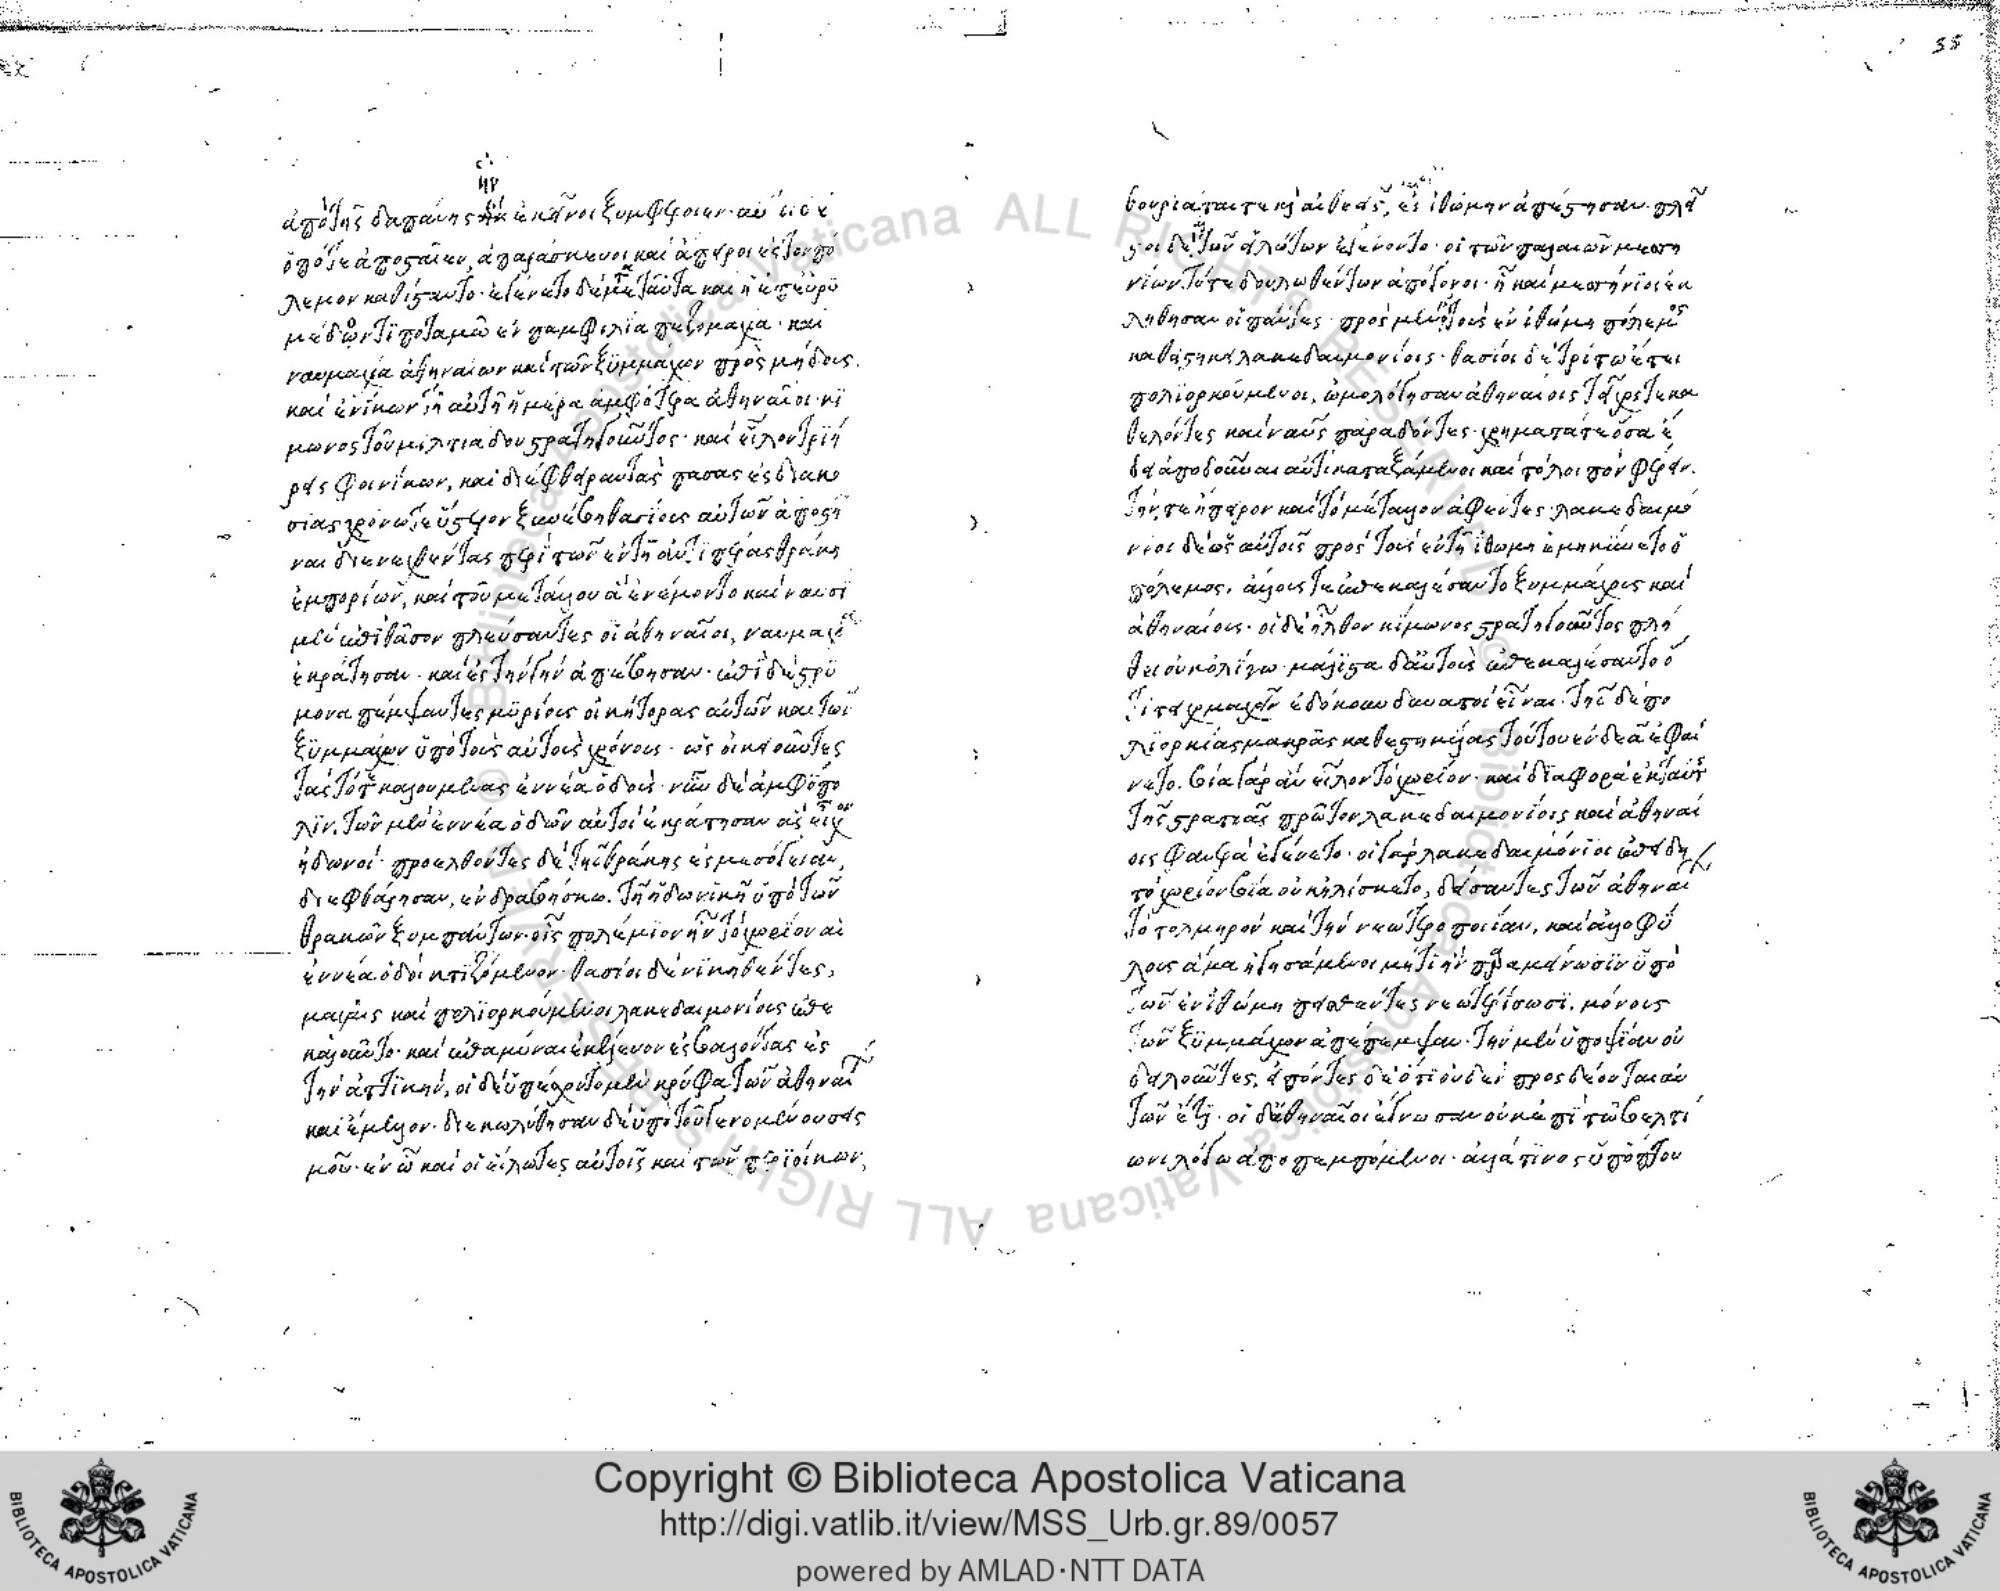 ἀπὸ τῆς δαπάνης ἣν ἐκεῖνοι ξυμφέροιεν· αὐτοὶ δὲ
ὁπότε ἀποσταῖεν, ἀπαράσκευοι καὶ ἄπειροι ἐς τὸν πό
λεμον καθίσταντο· ἐγένετο δὲ μετὰ ταῦτα καὶ ἡ ἐπ' εὐρυ
μέδοντι ποταμῶ ἐν παμφυλία πεζομαχία· καὶ
ναυμαχία ἀθηναίων καὶ τῶν ξυμμάχων πρὸς μήδους·
καὶ ἐνίκων τῆ αὐτῆ ἡμέρα ἀμφότερα ἀθηναῖοι· κί
μωνος τοῦ μιλτιάδου στρατηγοῦντος· καὶ εἷλον τριή
ρεις φοινίκων, καὶ διέφθειραν τὰς πάσας ἐς διακο
σίας χρόνω τε ὕστερον ξυνέβη θασίους αὐτῶν ἀποστῆ
ναι διενεχθέντας περὶ τῶν ἐν τῆ ἀντιπέρας θράκη
ἐμπορίων, καὶ τοῦ μετάλλου ἃ ἐνέμοντο καὶ ναυσὶ
μὲν ἐπὶ θάσον πλεύσαντες οἱ ἀθηναῖοι, ναυμαχία
ἐκράτησαν· καὶ ἐς τὴν γῆν ἀπέβησαν· ἐπὶ δὲ στρυ
μόνα πέμψαντες μυρίους οἰκήτορας αὐτῶν καὶ τῶν
ξυμμάχων ὑπὸ τοὺς αὐτοὺς χρόνους· ὡς οἰκιοῦντες
τὰς τότε καλουμένας ἐννέα ὁδούς· νῦν δὲ ἀμφίπο
λιν. τῶν μὲν ἐννέα ὁδῶν αὐτοὶ ἐκράτησαν ἃς εἶχον
ἠδωνοί· προελθόντες δὲ τῆς θράκης ἐς μεσόγειαν,
διεφθάρησαν, ἐν δραβήσκω. τῆ ἠδωνικῆ ὑπὸ τῶν
θρακῶν ξυμπάντων· οἷς πολέμιον ἦν τὸ χωρίον αἱ
ἐννέα ὁδοὶ κτιζόμενον· θάσιοι δὲ νικηθέντες,
μάχαις καὶ πολιορκούμενοι λακεδαιμονίους ἐπε
καλοῦντο· καὶ ἐπαμύναι ἐκέλευον ἐσβαλόντας ἐς
τὴν ἀττικήν, οἱ δὲ ὑπέσχοντο μὲν κρύφα τῶν ἀθηναί
καὶ ἔμελλον· διεκωλύθησαν δὲ ὑπὸ τοῦ γενομένου σεις
μοῦ· ἐν ὧ καὶ οἱ εἵλωτες αὐτοῖς καὶ τῶν περιοίκων,
θουριᾶταί τε καὶ αἰθεεῖς, ἐς ἰθώμην ἀπέστησαν· πλεῖ
στοι δὲ τῶν εἱλώτων ἐγένοντο· οἱ τῶν παλαιῶν μεσση
νίων τότε δουλωθέντων ἀπόγονοι· ἧ καὶ μεσήνιοι ἐκ
λήθησαν οἱ πάντες· πρὸς μὲν οὖν τοὺς ἐν ἰθώμη πόλεμος
καθεστήκει λακεδαιμονίοις· θάσιοι δὲ τρίτω ἔτει
πολιορκούμενοι, ὡμολόγησαν ἀθηναίοις τεῖχός τε κα
θελόντες καὶ ναῦς παραδόντες· χρήματά τε ὅσα ἔ
δει ἀποδοῦναι αὐτίκα ταξάμενοι καὶ τὸ λοιπὸν φέρειν·
τήν, τε ἤπειρον καὶ τὸ μέταλλον ἀφέντες· λακεδαιμό
νιοι δὲ ὡς αὐτοῖς πρὸς τοὺς ἐν τῆ ἰθώμη ἐμηκύνετο ὁ
πόλεμος, ἄλλους τε ἐπεκαλέσαντο ξυμμάχους καὶ
ἀθηναίους· οἱ δὲ ἦλθον κίμωνος στρατηγοῦντος πλή
θει οὐκ ὀλίγω· μάλιστα δ' αὐτοὺς ἐπεκαλέσαντο ὅ
τι τειχομαχεῖν ἐδόκουν δυνατοὶ εἶναι· τῆς δὲ πο
λιορκίας μακρᾶς καθεστηκυίας τούτου ἐνδεᾶ ἐφαί
νετο. βία γὰρ ἂν εἷλον τὸ χωρίον· καὶ διαφορὰ ἐκ ταύτης
τῆς στρατιᾶς πρῶτον λακεδαιμονίοις καὶ ἀθηναί
οις φανερὰ ἐγένετο· οἱ γὰρ λακεδαιμόνιοι ἐπειδὴ
τὸ χωρίον βία οὐκ ἡλίσκετο, δείσαντες τῶν ἀθηναί
τὸ τολμηρὸν καὶ τὴν νεωτεροποιίαν, καὶ ἀλλοφύ
λους ἅμα ἡγησάμενοι μή τι ἢν παραμείνωσιν ὑπὸ
τῶν ἐν ἰθώμη πεισθέντες νεωτερίσωσι, μόνους
τῶν ξυμμάχων ἀπέπεμψαν· τὴν μὲν ὑποψίαν οὐ
δηλοῦντες, εἰπόντες δὲ ὅτι οὐδὲν προσδέονται αὐ
τῶν ἔτι· οἱ δ' ἀθηναῖοι ἔγνωσαν οὐκ ἐπὶ τῶ βελτί
ονι λόγω ἀποπεμπόμενοι· ἀλλά τινος ὑπόπτου
Copyright © Biblioteca Apostolica Vaticana
http://digi.vatlib.it/view/MSS_Urb.gr.89/0057
powered by AMLAD·NTT DATA